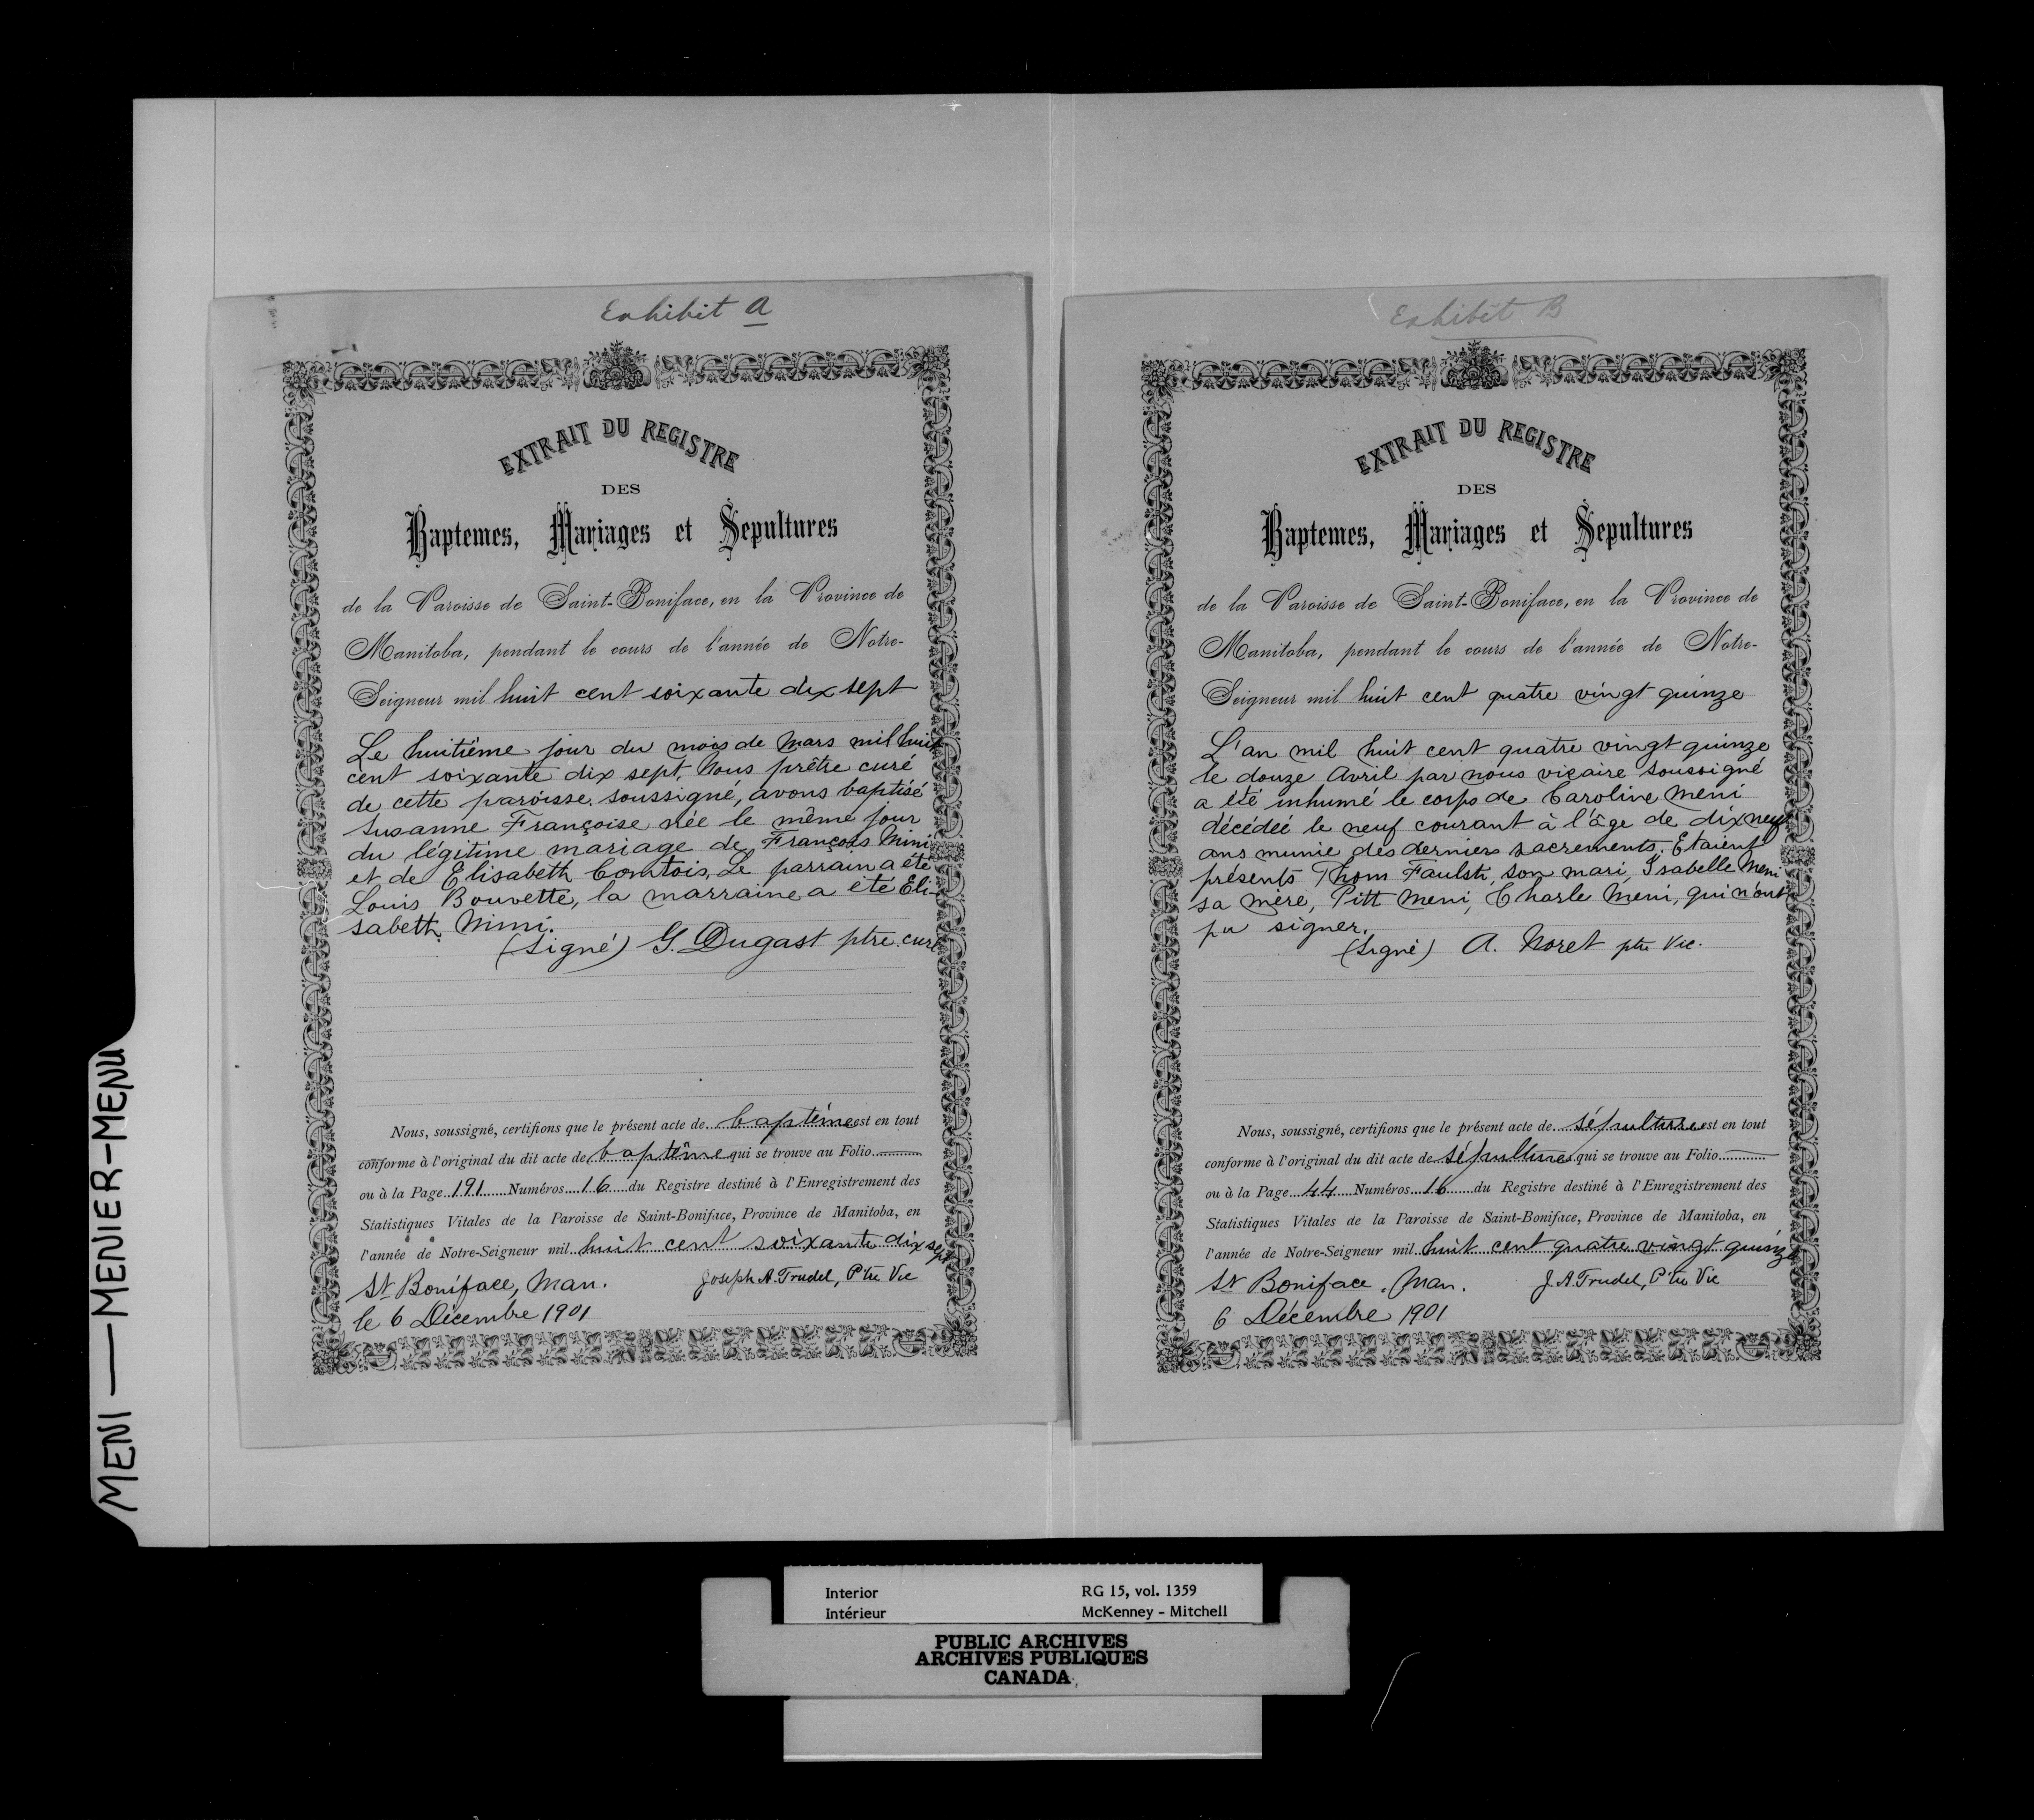 Exhibit A
EXTRAIT DU REGISTRE
DES
Baptemes, Mariages et Sepultures
de la Paroisse de Saint-Boniface, en la Province de
Manitoba, pendant le cours de l'année de Notre-
Seigneur mil huit cent soixante dix sept
Le huitième jour du mois de Mars mil huit
cent soixante dix sept, Nous prêtre curé
de cette paroisse soussigné, avons baptisé
Susanne Françoise née le même jour
du légitime mariage de François Mini
et de Elisabeth Comtois, Le parrain a été
Louis Bouvette, la marraine a été Eli-
sabeth Mini.
(Signé) G. Dugast ptre curé
Nous, soussigné, certifions que le présent acte de baptême est en tout
conforme à l'original du dit acte de baptême qui se trouve au Folio
ou à la Page 191 Numéros 16 du Registre destiné à l'Enregistrement des
Statistiques Vitales de la Paroisse de Saint-Boniface, Province de Manitoba, en
l'année de Notre-Seigneur mil huit cent soixante dix sept
St Boniface, Man. Joseph A. Trudel, Ptre Vic
le 6 Décembre 1901
Exhibit B
EXTRAIT DU REGISTRE
DES
Baptemes, Mariages et Sepultures
de la Paroisse de Saint-Boniface, en la Province de
Manitoba, pendant le cours de l'année de Notre-
Seigneur mil huit cent quatre vingt quinze
L'an mil huit cent quatre vingt quinze
le douze Avril par nous vicaire soussigné
a été inhumé le corps de Caroline Meni
décédée le neuf courant à l'âge de dix neuf
ans munie des derniers sacrements. Etaient
présents Thom Faulst, son mari, Isabelle Meni
sa mère, Pitt Meni, Charle Meni, qui n'ont
pu signer.
(Signé) A. Noret ptre Vic.
Nous, soussigné, certifions que le présent acte de sépulture est en tout
conforme à l'original du dit acte de sépulture qui se trouve au Folio
ou à la Page 44 Numéros 16 du Registre destiné à l'Enregistrement des
Statistiques Vitales de la Paroisse de Saint-Boniface, Province de Manitoba, en
l'année de Notre-Seigneur mil huit cent quatre vingt quinze
St Boniface, Man. J. A. Trudel, Ptre Vic
6 Décembre 1901
MENI — MENIER-MENU
Interior RG 15, vol. 1359
Intérieur McKenney - Mitchell
PUBLIC ARCHIVES
ARCHIVES PUBLIQUES
CANADA